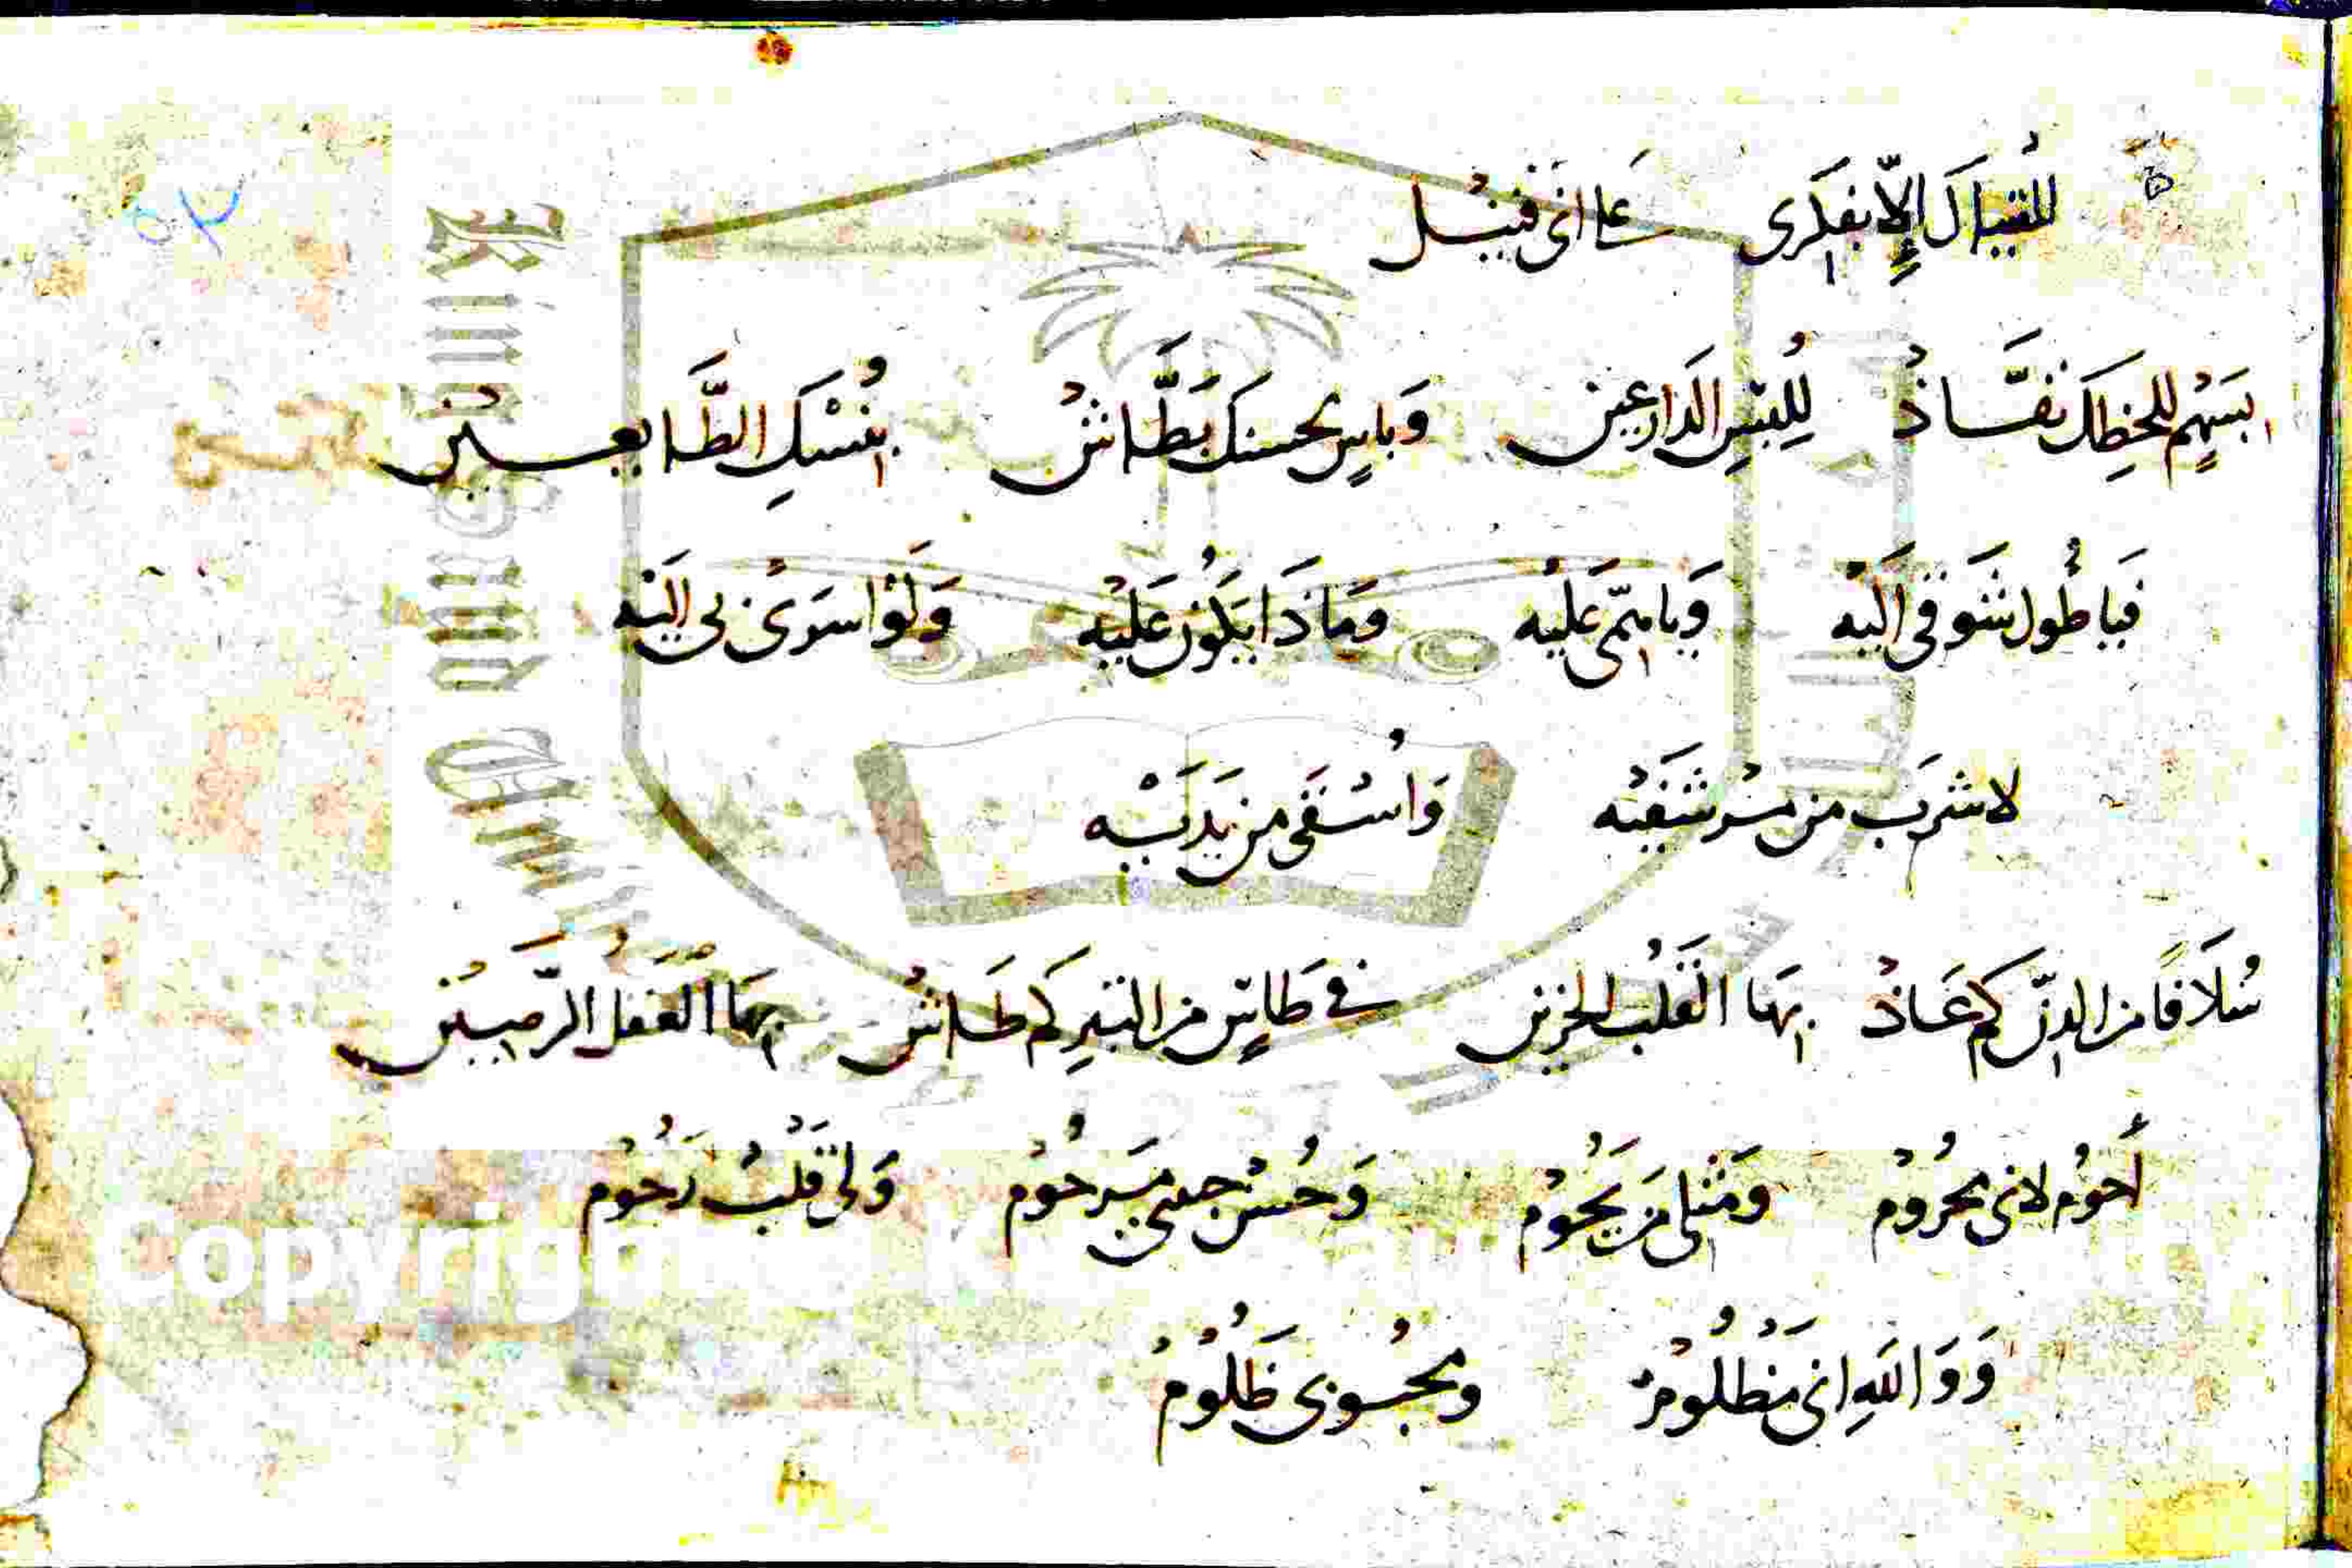 إلّا بفكرى على اى قتيل
بسهمٍ للحظك نفّاذ للبس الدارعين وباسٍ بحسنك بطّاش بنسك الطابعين
فيا طول شوقى اليه ويا ميمى عليه وماذا يكون عليه ولو اسرى بى اليه
لاشرب من مرشفيه واسقى من يديه
سُلافًا من الدنّ كم عاذ بها القلب الحزين فى طاسٍ من التبر كم طاش بها العقل الرصين
أحوم لانى محروم ومثلى من يحوم وحسن مرحوم ولى قلب رحوم
ووالله انى مظلوم ومحبوبى ظلوم